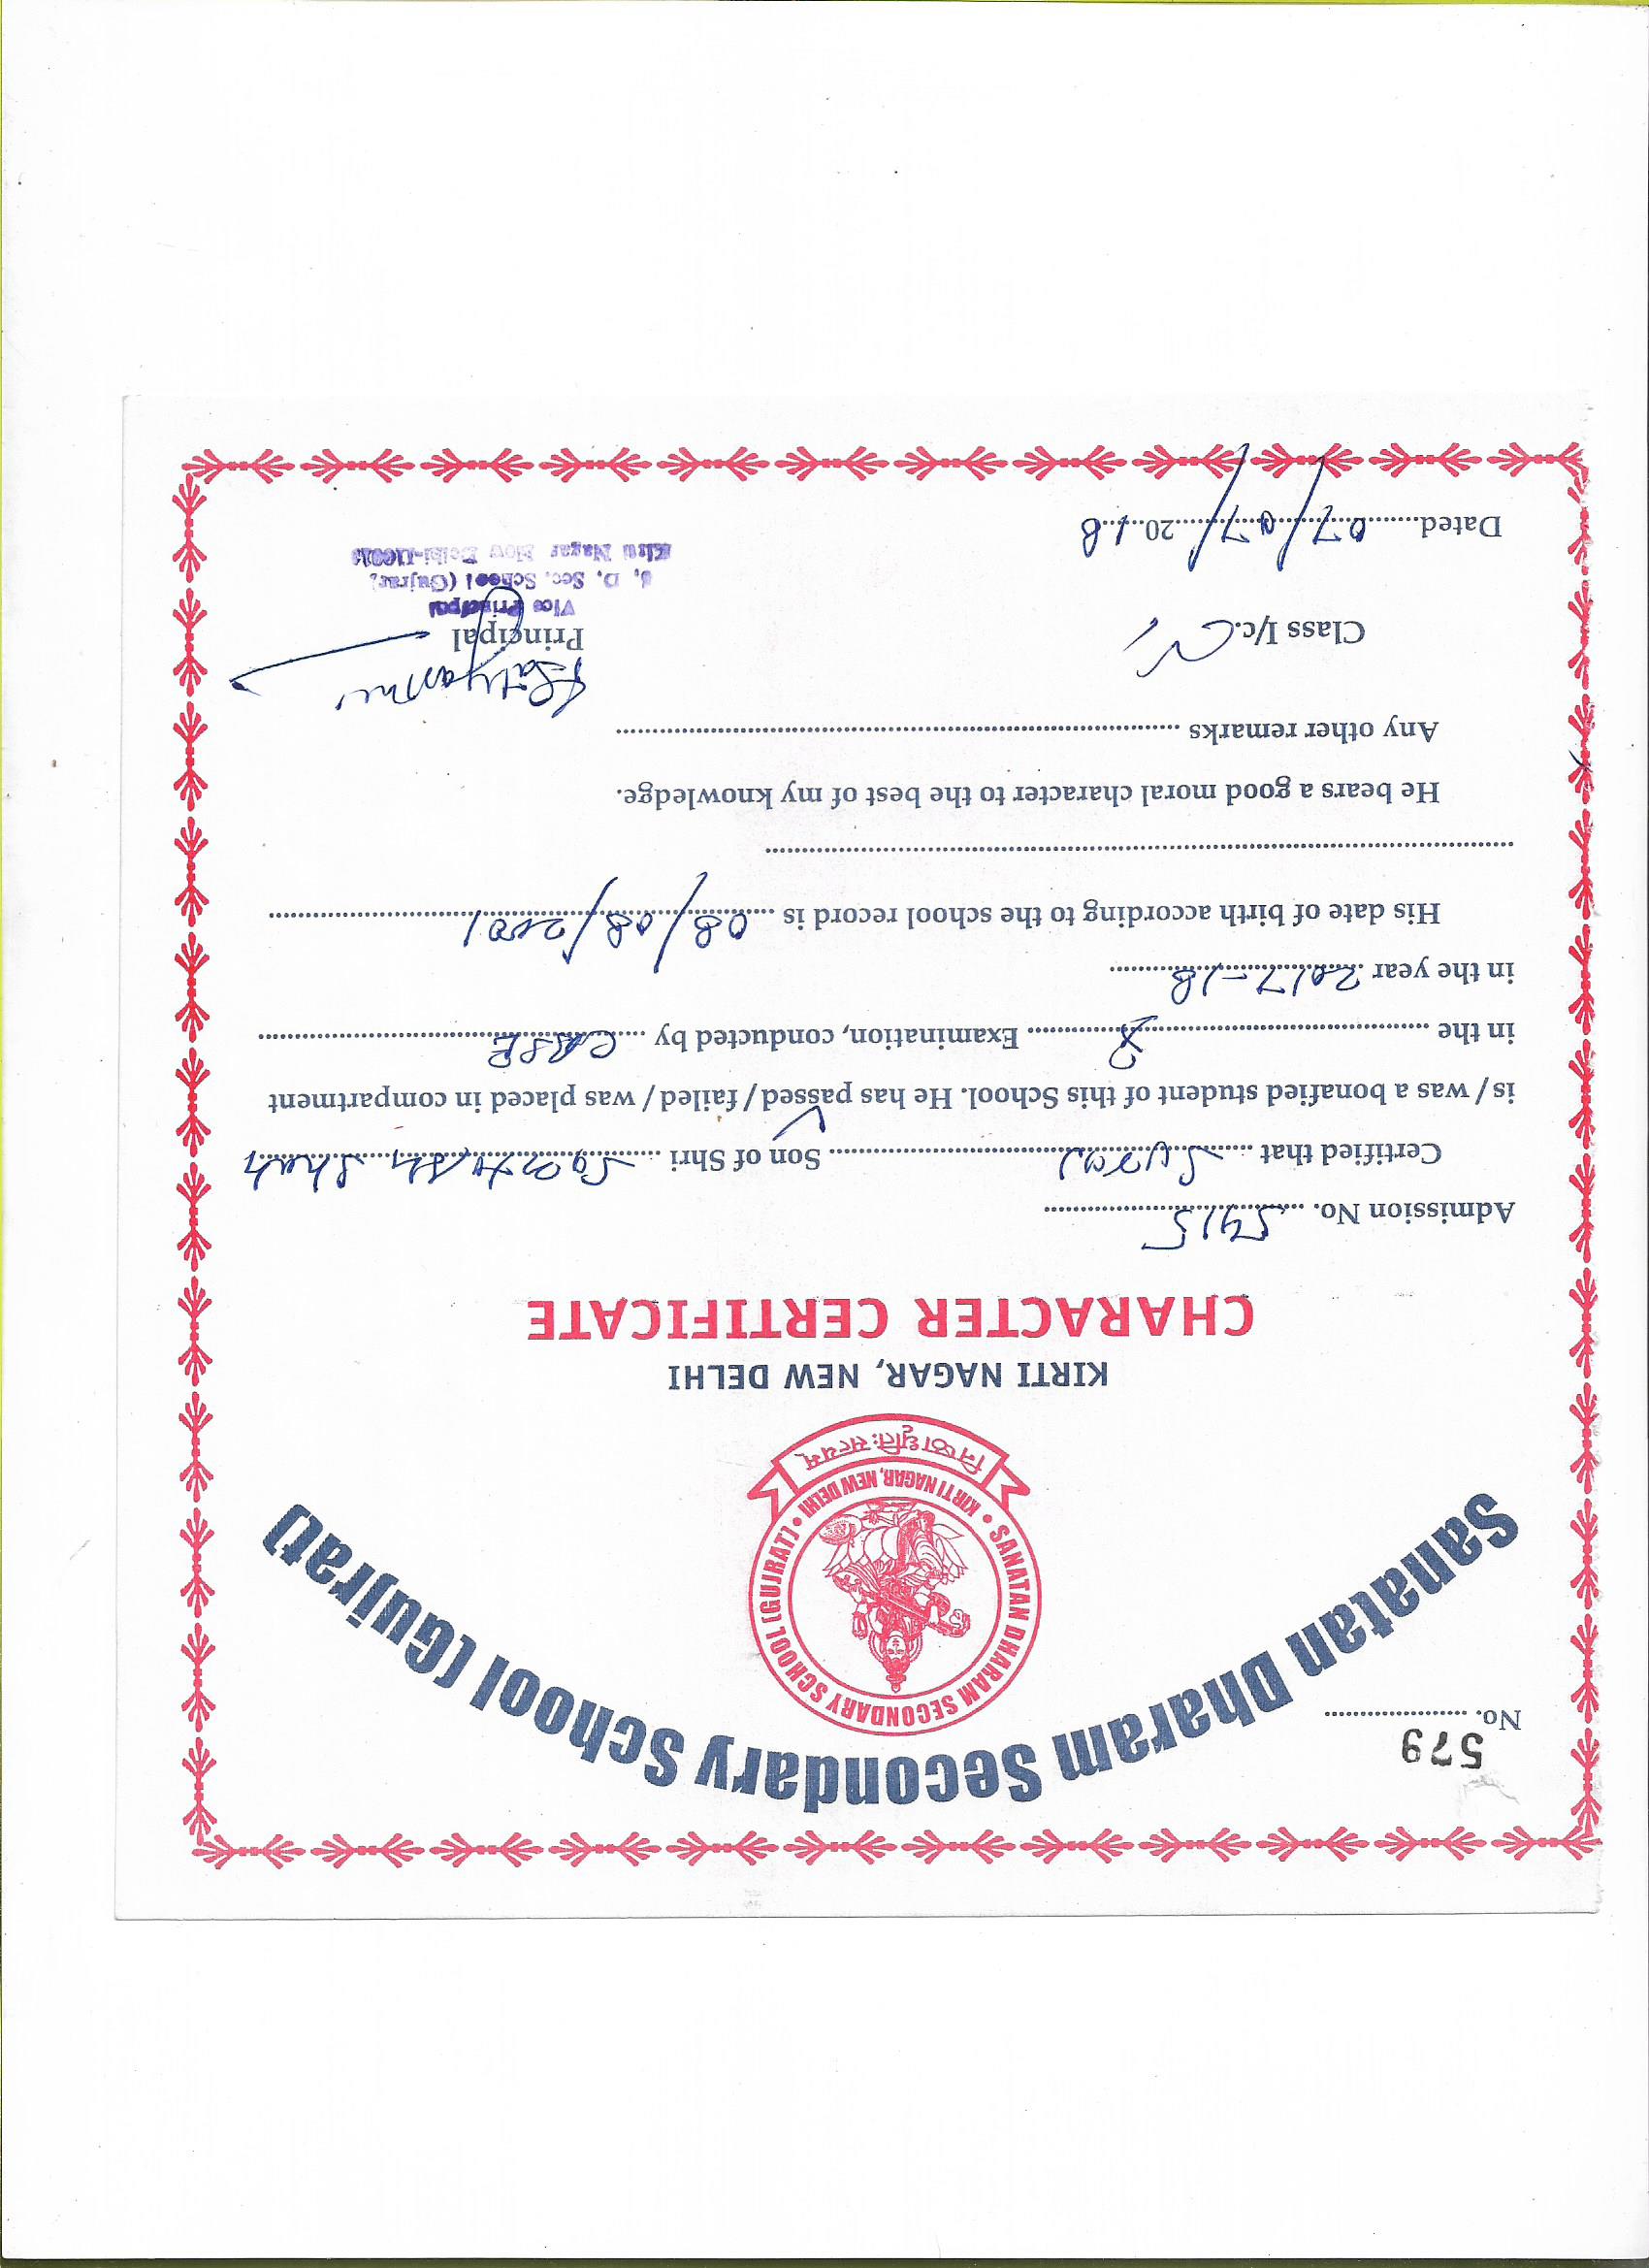 No. 579
Sanatan Dharam Secondary School (Gujrat)
SANATAN DHARAM SECONDARY SCHOOL (GUJRAT)
• KIRTI NAGAR, NEW DELHI •
निष्ठा धृतिः सत्यम्
KIRTI NAGAR, NEW DELHI
CHARACTER CERTIFICATE
Admission No. 5915
Certified that Suraj Son of Shri Santosh Shah
is / was a bonafied student of this School. He has passed / failed / was placed in compartment
in the X Examination, conducted by CBSE
in the year 2017-18
His date of birth according to the school record is 08/08/2001
He bears a good moral character to the best of my knowledge.
Any other remarks
Class I/c.
Principal
Vice Principal
S. D. Sec. School (Gujrat)
Kirti Nagar New Delhi-110015
Dated 07/07/2018